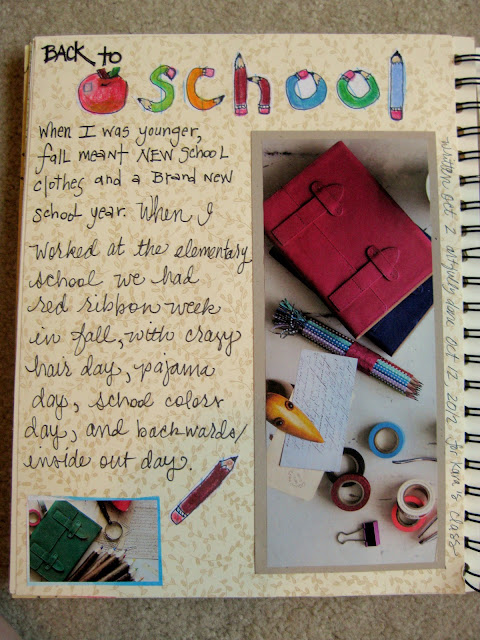 BACK to
school
When I was younger,
fall meant NEW School
clothes and a Brand new
school year. When I
worked at the elementary
school we had
red ribbon week
in fall, with crazy
hair day, pajama
day, school colors
day, and backwards/
inside out day.
written Oct 2 actually done Oct 12, 2012 for Kara's class